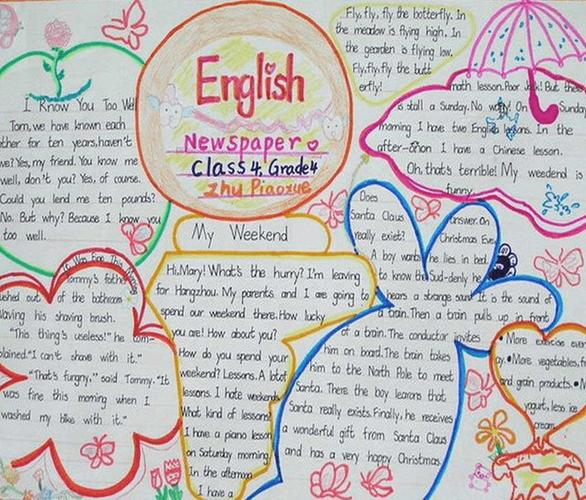 English
Newspaper
Class 4. Grade 4
Zhu Piaoxue
I Know You Too Well
Tom, we have known each
other for ten years, haven't
we? Yes, my friend. You know me
well, don't you? Yes, of course.
Could you lend me ten pounds?
No. But why? Because I know you
too well.
Fly, fly, fly the botterfly. In
the meadow is flying high. In
the gearden is flying low.
Fly, fly, fly the butt
erfly!
math lesson. Poor Jack! But there
is stall a Sunday. No worry! On
morning I have two English lessons. In the
after-shon I have a Chinese lesson.
Oh, that's terrible! My weedend is
funny.
My Weekend
Hi, Mary! What's the hurry? I'm leaving
for Hangzhou. My parents and I are going to
spend our weekend there. How lucky
you are! How about you?
How do you spend your
weekend? Lessons. A lot
lessons. I hate weekends
What kind of lessons?
I have a piano lesson
on Saturday morning.
In the afternoon
I have a
Does
Santa Claus
really exist?
answer. On
Christmas Eve,
A boy wants
he lies in bed.
to know the
Sud-denly he
hears a strange soud. It is the sound of
a train. Then a train pulls up in front
of a train. The conductor invites
him on board. The train takes
him to the North Pole to meet
Santa. There the boy learns that
Santa really exists. Finally, he receives
a wonderful gift from Santa Claus
and has a very happy Christmas.
It Was Fine This Morning
Tommy's father
rushed out of the bathroom
waving his shaving brush.
"This thing's useless!" he com-
plained. "I can't shave with it."
"That's furgny," said Tommy. "It
was fine this morning when I
washed my bike with it."
• More exercise ever
• More vegetables, f
and grain products. •
yogurt, less ice
cream.